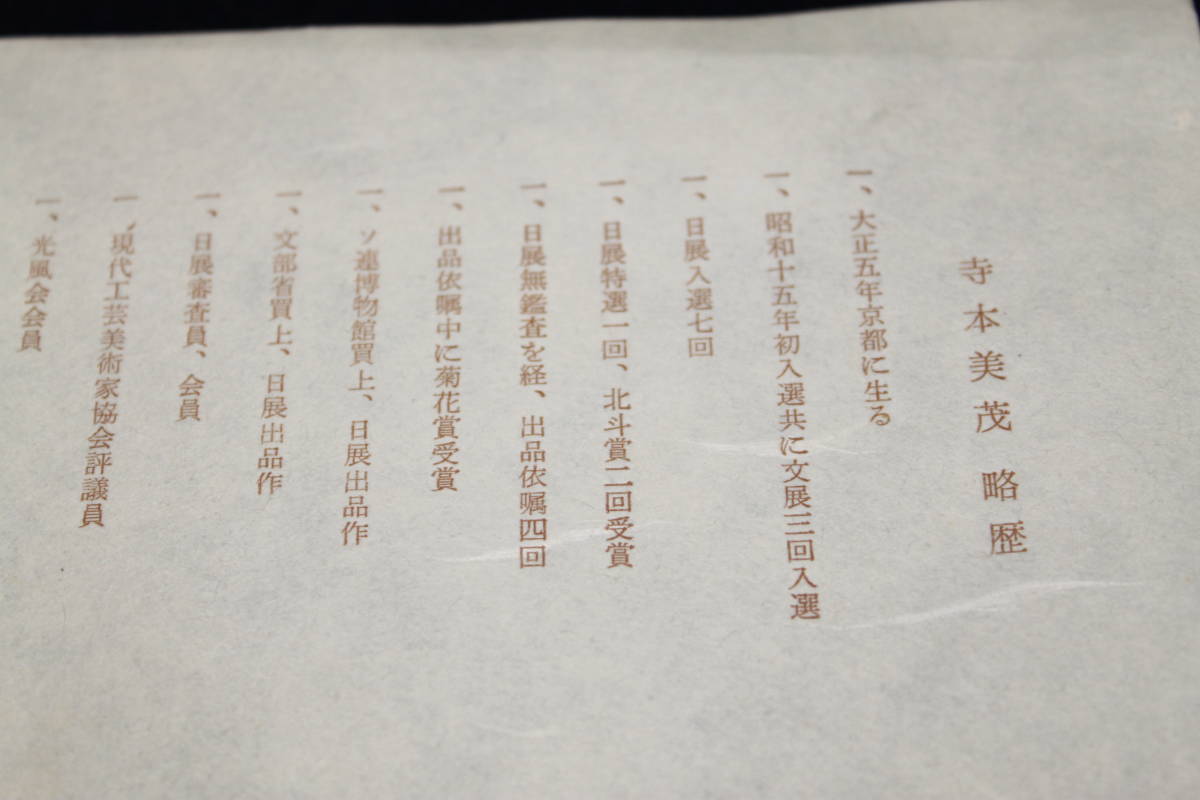 寺本美茂 略歴
一、大正五年京都に生る
一、昭和十五年初入選共に文展三回入選
一、日展入選七回
一、日展特選一回、北斗賞二回受賞
一、日展無鑑査を経、出品依嘱四回
一、出品依嘱中に菊花賞受賞
一、ソ連博物館買上、日展出品作
一、文部省買上、日展出品作
一、日展審査員、会員
一、現代工芸美術家協会評議員
一、光風会会員